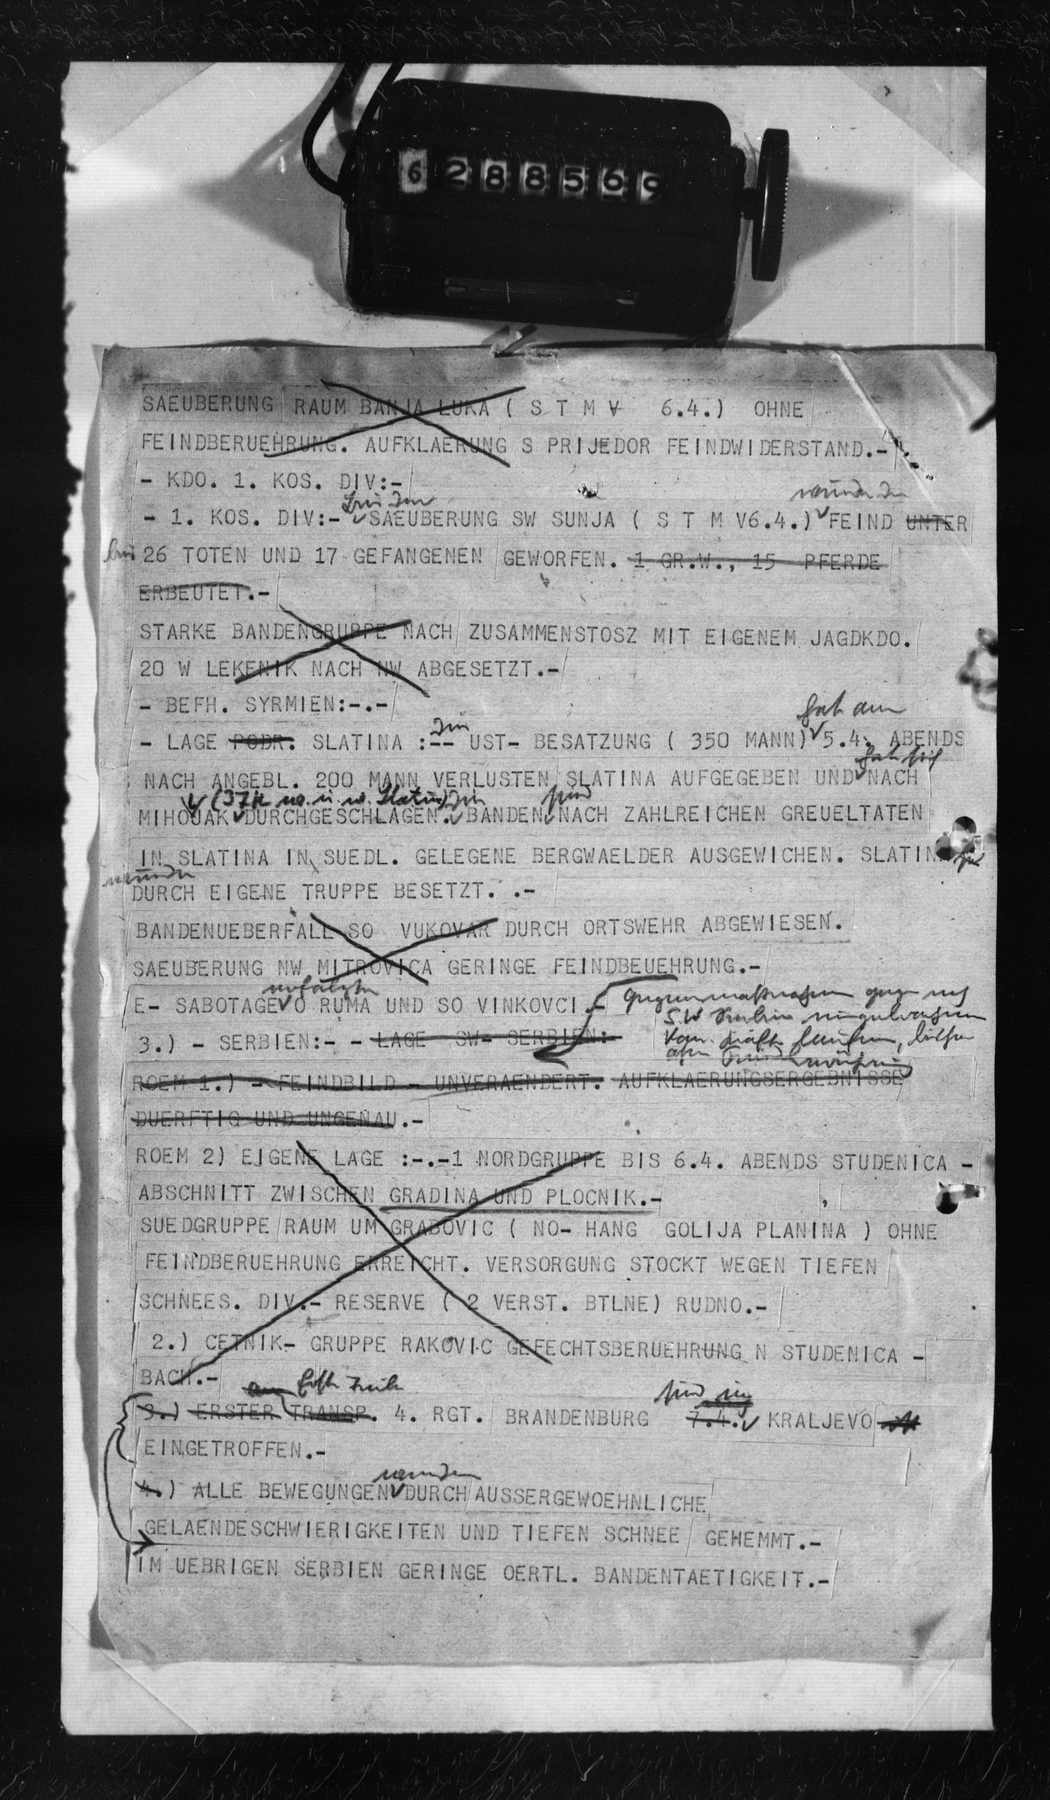 6288569
SAEUBERUNG RAUM BANJA LUKA ( S T M V 6.4.) OHNE
FEINDBERUEHRUNG. AUFKLAERUNG S PRIJEDOR FEINDWIDERSTAND.-
- KDO. 1. KOS. DIV:-
wurden
- 1. KOS. DIV:- SAEUBERUNG SW SUNJA ( S T M V6.4.) FEIND UNTER
26 TOTEN UND 17 GEFANGENEN GEWORFEN. 1 GR.W., 15 PFERDE
ERBEUTET.-
STARKE BANDENGRUPPE NACH ZUSAMMENSTOSZ MIT EIGENEM JAGDKDO.
20 W LEKENIK NACH NW ABGESETZT.-
- BEFH. SYRMIEN:-.-
hat am
- LAGE PODR. SLATINA :-- UST- BESATZUNG ( 350 MANN) 5.4. ABENDS
hat sich
NACH ANGEBL. 200 MANN VERLUSTEN SLATINA AUFGEGEBEN UND NACH
(37 K w. u. w. Slatina) Die sind
MIHOJAK DURCHGESCHLAGEN. BANDEN NACH ZAHLREICHEN GREUELTATEN
IN SLATINA IN SUEDL. GELEGENE BERGWAELDER AUSGEWICHEN. SLATINA
wurde
DURCH EIGENE TRUPPE BESETZT. .-
BANDENUEBERFALL SO VUKOVAR DURCH ORTSWEHR ABGEWIESEN.
SAEUBERUNG NW MITROVICA GERINGE FEINDBEUEHRUNG.-
E- SABOTAGE O RUMA UND SO VINKOVCI.- Gegenmaßnahmen gegen
3.) - SERBIEN:- - LAGE SW- SERBIEN:-
ROEM 1.) - FEINDBILD - UNVERAENDERT. AUFKLAERUNGSERGEBNISSE
DUERFTIG UND UNGENAU.-
ROEM 2) EIGENE LAGE :-.-1 NORDGRUPPE BIS 6.4. ABENDS STUDENICA -
ABSCHNITT ZWISCHEN GRADINA UND PLOCNIK.-
SUEDGRUPPE RAUM UM GRABOVIC ( NO- HANG GOLIJA PLANINA ) OHNE
FEINDBERUEHRUNG ERREICHT. VERSORGUNG STOCKT WEGEN TIEFEN
SCHNEES. DIV.- RESERVE ( 2 VERST. BTLNE) RUDNO.-
2.) CETNIK- GRUPPE RAKOVIC GEFECHTSBERUEHRUNG N STUDENICA -
BACH.-
Erste Teile sind in
3.) ERSTER TRANSP. 4. RGT. BRANDENBURG 7.4. KRALJEVO
EINGETROFFEN.-
wurden
4.) ALLE BEWEGUNGEN DURCH AUSSERGEWOEHNLICHE
GELAENDESCHWIERIGKEITEN UND TIEFEN SCHNEE GEHEMMT.-
IM UEBRIGEN SERBIEN GERINGE OERTL. BANDENTAETIGKEIT.-